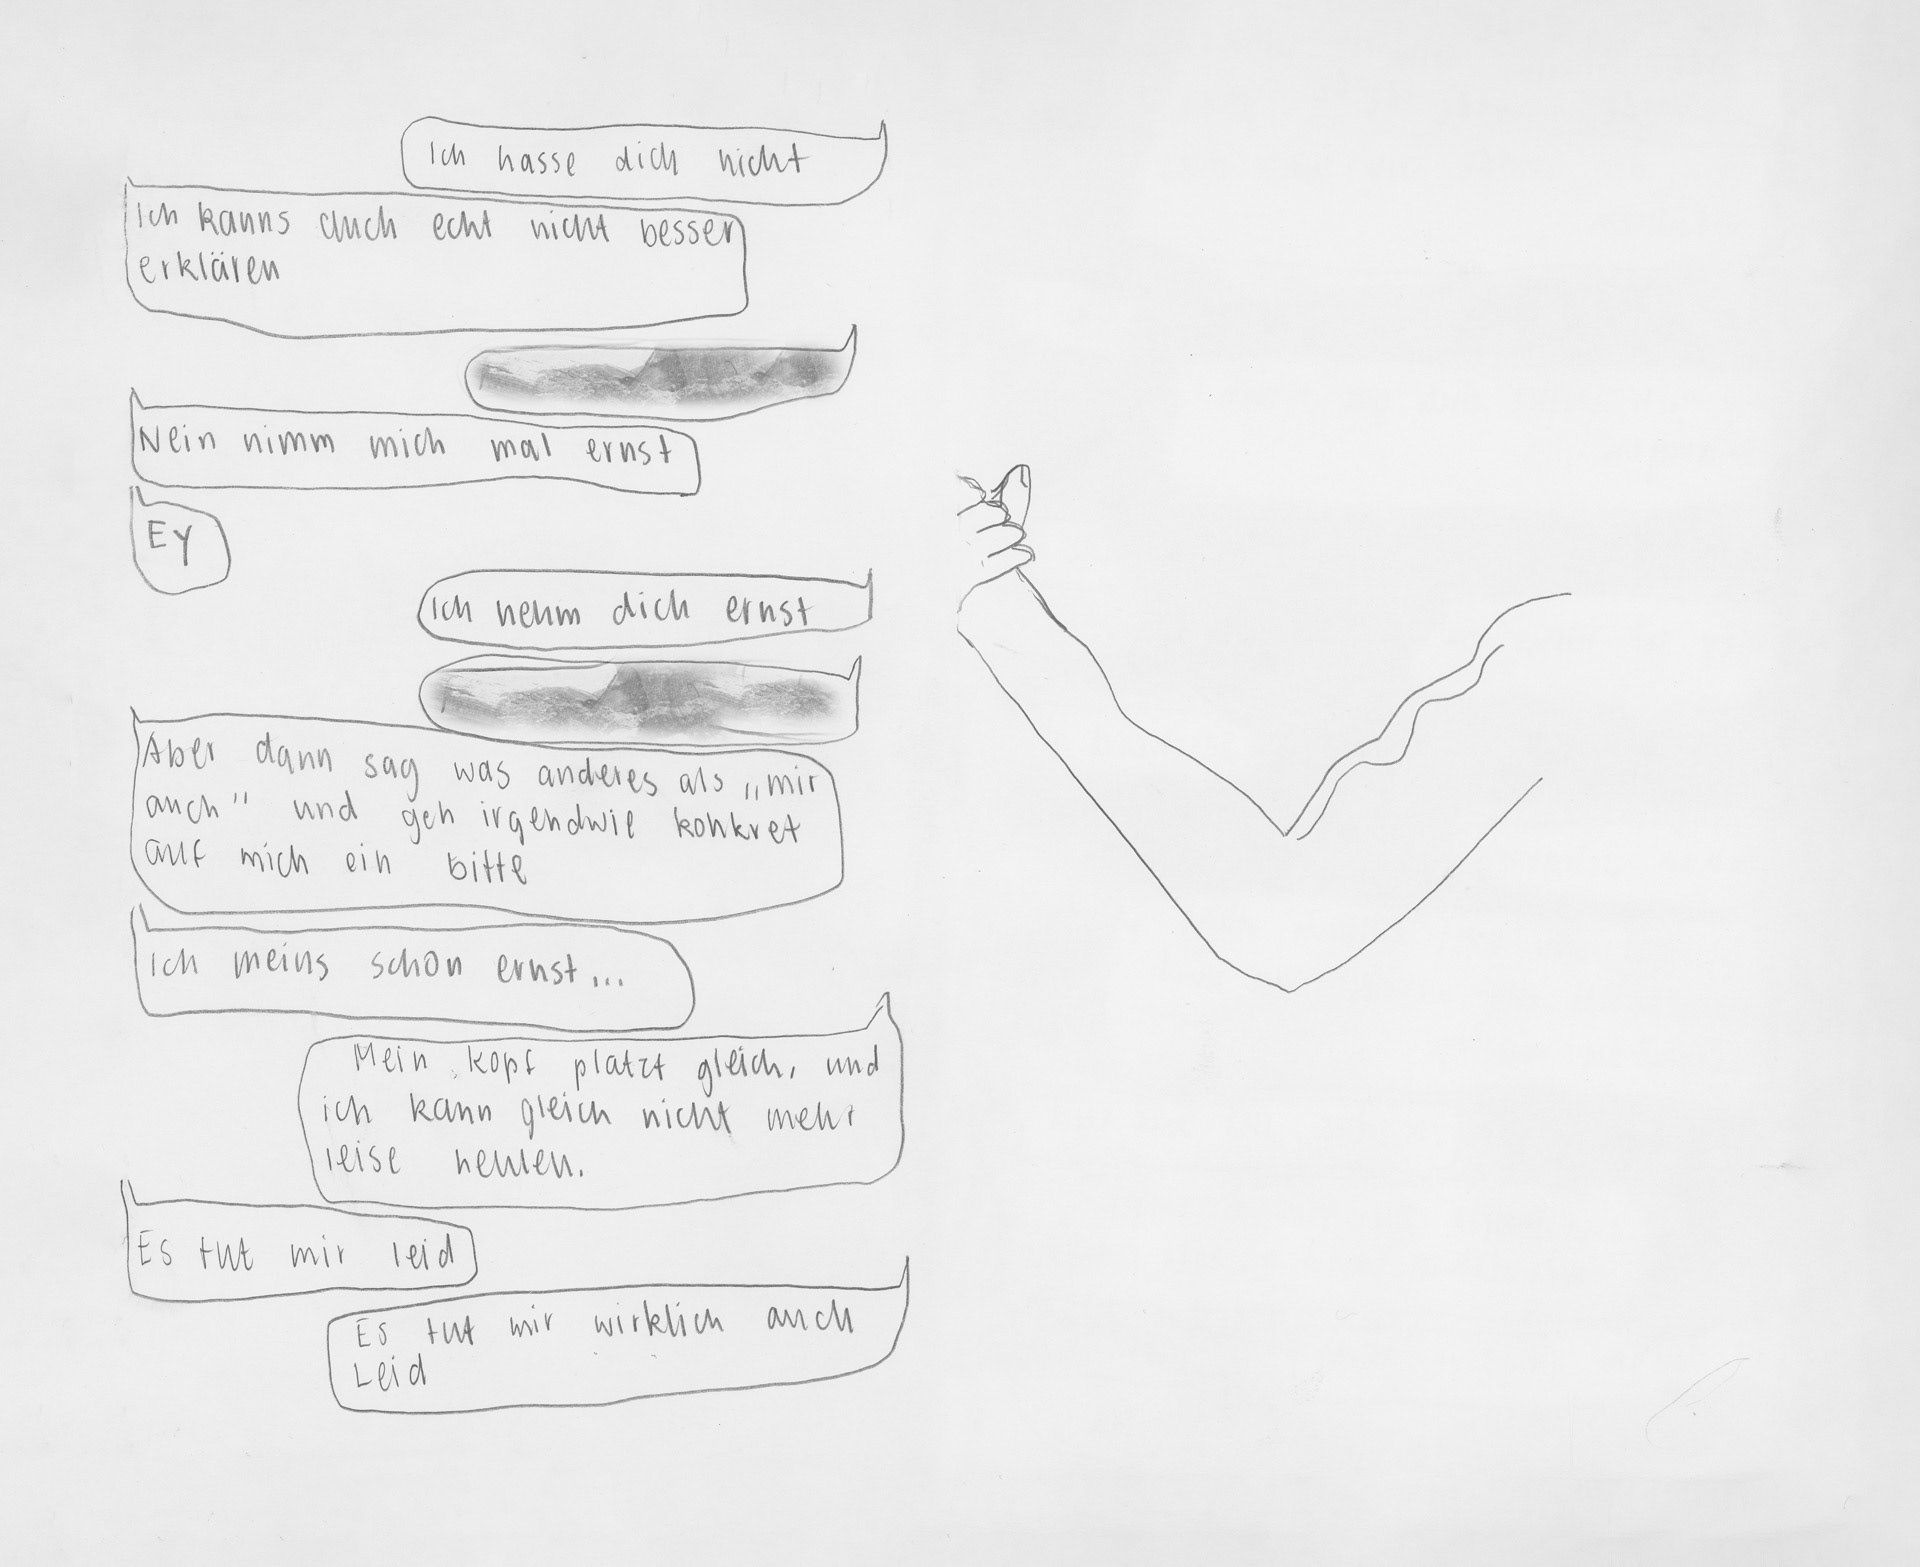 Ich hasse dich nicht
Ich kanns auch echt nicht besser
erklären
Nein nimm mich mal ernst
Ey
Ich nehm dich ernst
Aber dann sag was anderes als „mir
auch" und geh irgendwie konkret
auf mich ein bitte
Ich meins schon ernst...
Mein Kopf platzt gleich, und
ich kann gleich nicht mehr
leise heulen.
Es tut mir leid
Es tut mir wirklich auch
Leid